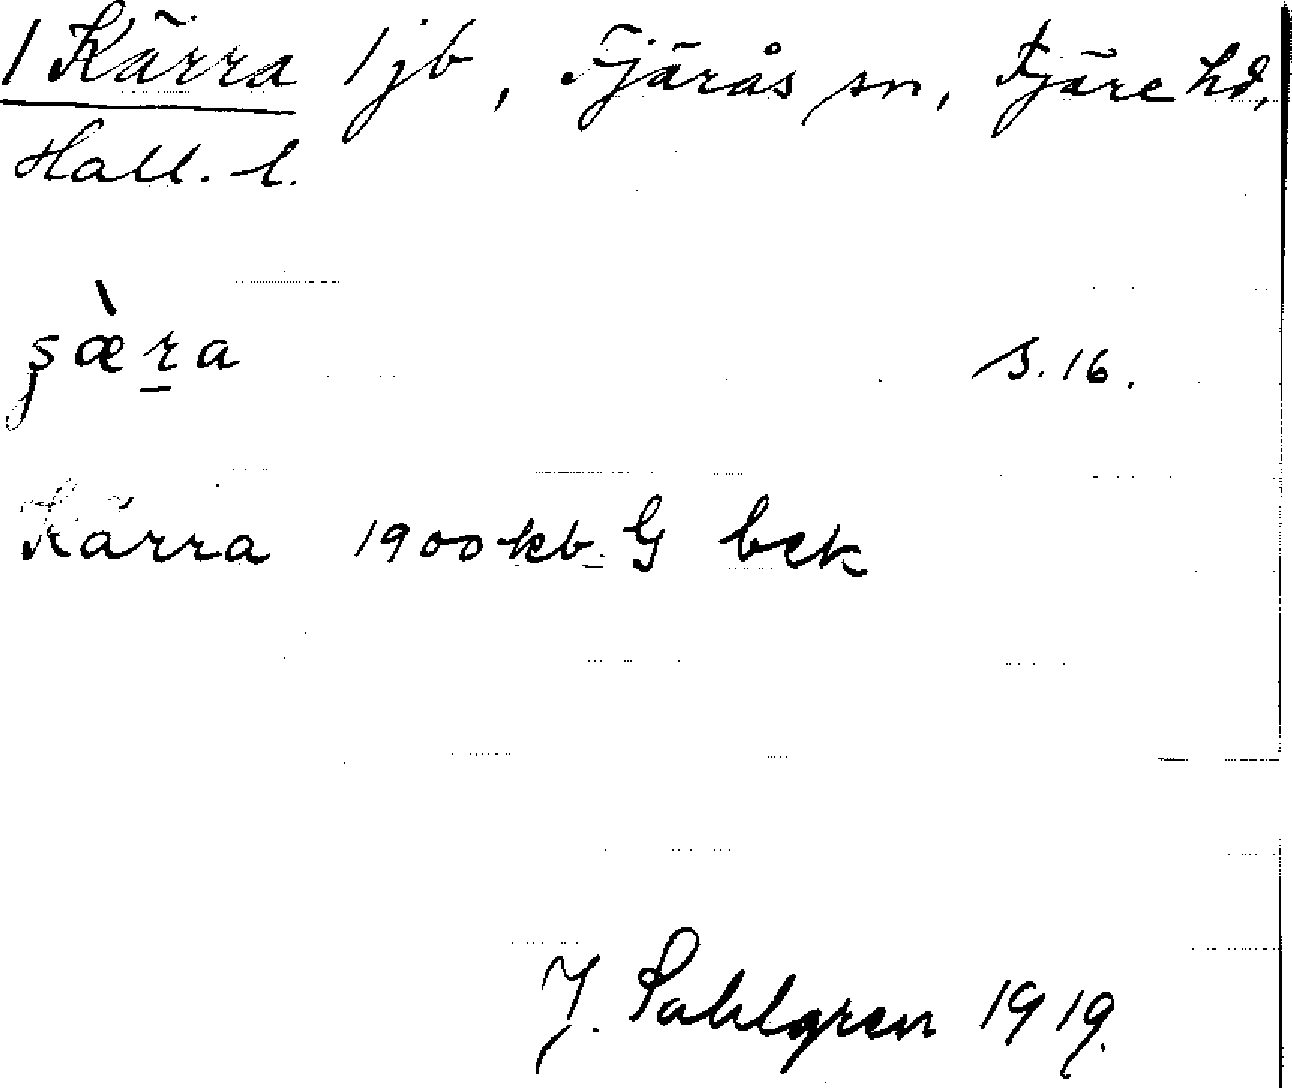 1 Kärra 1 jb, Fjärås sn, Fjäre hd,
Hall. l.
şæ̀ṟa S. 16.
Kärra 1900 kb. G bek
J. Sahlgren 1919.